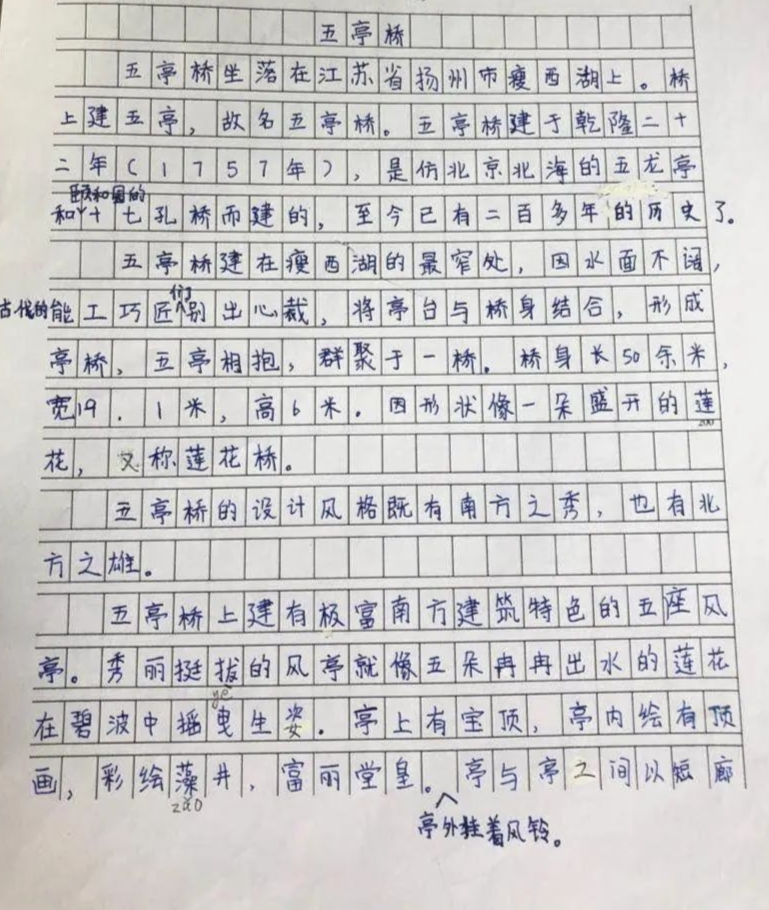 五亭桥
五亭桥坐落在江苏省扬州市瘦西湖上。桥
上建五亭，故名五亭桥。五亭桥建于乾隆二十
二年（1757年），是仿北京北海的五龙亭
和颐和园的十七孔桥而建的，至今已有二百多年的历史了。
五亭桥建在瘦西湖的最窄处，因水面不阔，
古代的能工巧匠们别出心裁，将亭台与桥身结合，形成
亭桥，五亭相抱，群聚于一桥。桥身长50余米，
宽19.1米，高6米。因形状像一朵盛开的莲
花，又称莲花桥。
五亭桥的设计风格既有南方之秀，也有北
方之雄。
五亭桥上建有极富南方建筑特色的五座风
亭。秀丽挺拔的风亭就像五朵冉冉出水的莲花
ye
在碧波中摇曳生姿。亭上有宝顶，亭内绘有顶
画，彩绘藻井，富丽堂皇。亭与亭之间以短廊
zao
亭外挂着风铃。